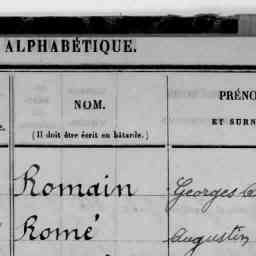 ALPHABÉTIQUE.
NOM.
(Il doit être écrit en bâtarde.)
PRÉNO
ET SURN
Romain
Georges
Romé
Augustin